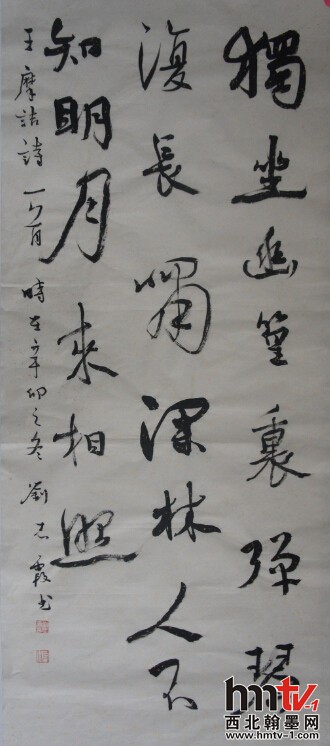 獨坐幽篁裏彈琴
復長嘯深林人不
知明月來相照
王摩詰詩一首 時在辛卯之冬 劉志霞書
hmtv-1
西北翰墨网
www.hmtv-1.com